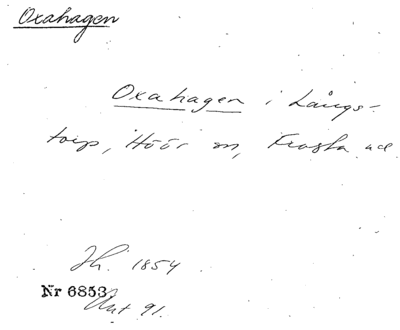 Oxahagen
Oxahagen i Långs-
torp, Höör sn, Frosta hd
Jh. 1854
Nr 6853
Ant 91.